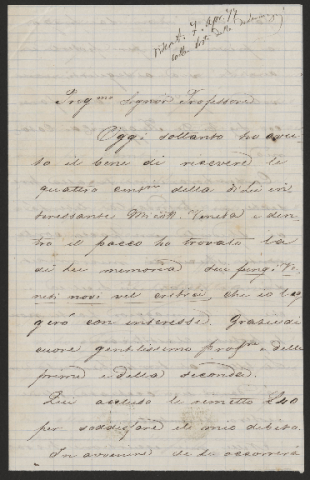 7. Apr. 77
Signor Professore
Oggi soltanto ho avu-
to il bene di ricevere le
quattro della di Lei in-
teressante Micol. Veneta e den-
tro il pacco ho trovato la
di lei memoria sui fungi Ve-
neti novi vel critici, che io leg-
gerò con interesse. Grazie di
cuore gentilissimo e della
prima e della seconda.
Qui accluso le rimetto £40
per soddisfare il mio debito.
In avvenire se le occorrerà